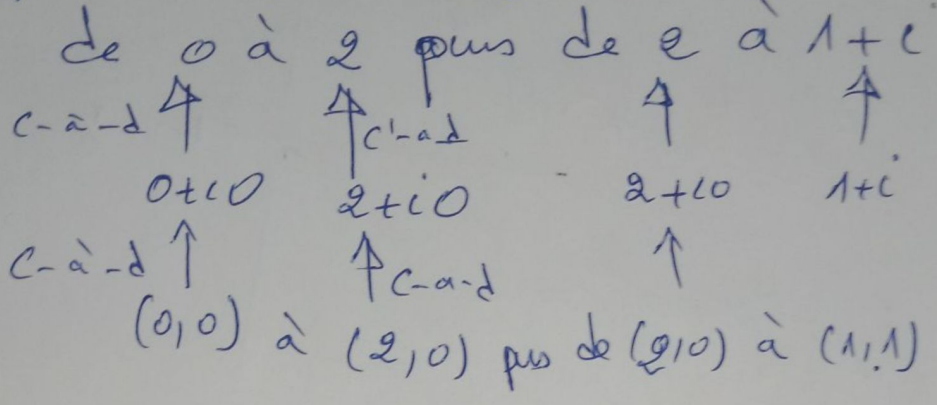 de 0 à 2 puis de 2 à 1+i
c-à-d c'-a-d
0+i0 2+i0 2+i0 1+i
c-à-d c-a-d
(0,0) à (2,0) pus de (2,0) à (1,1)